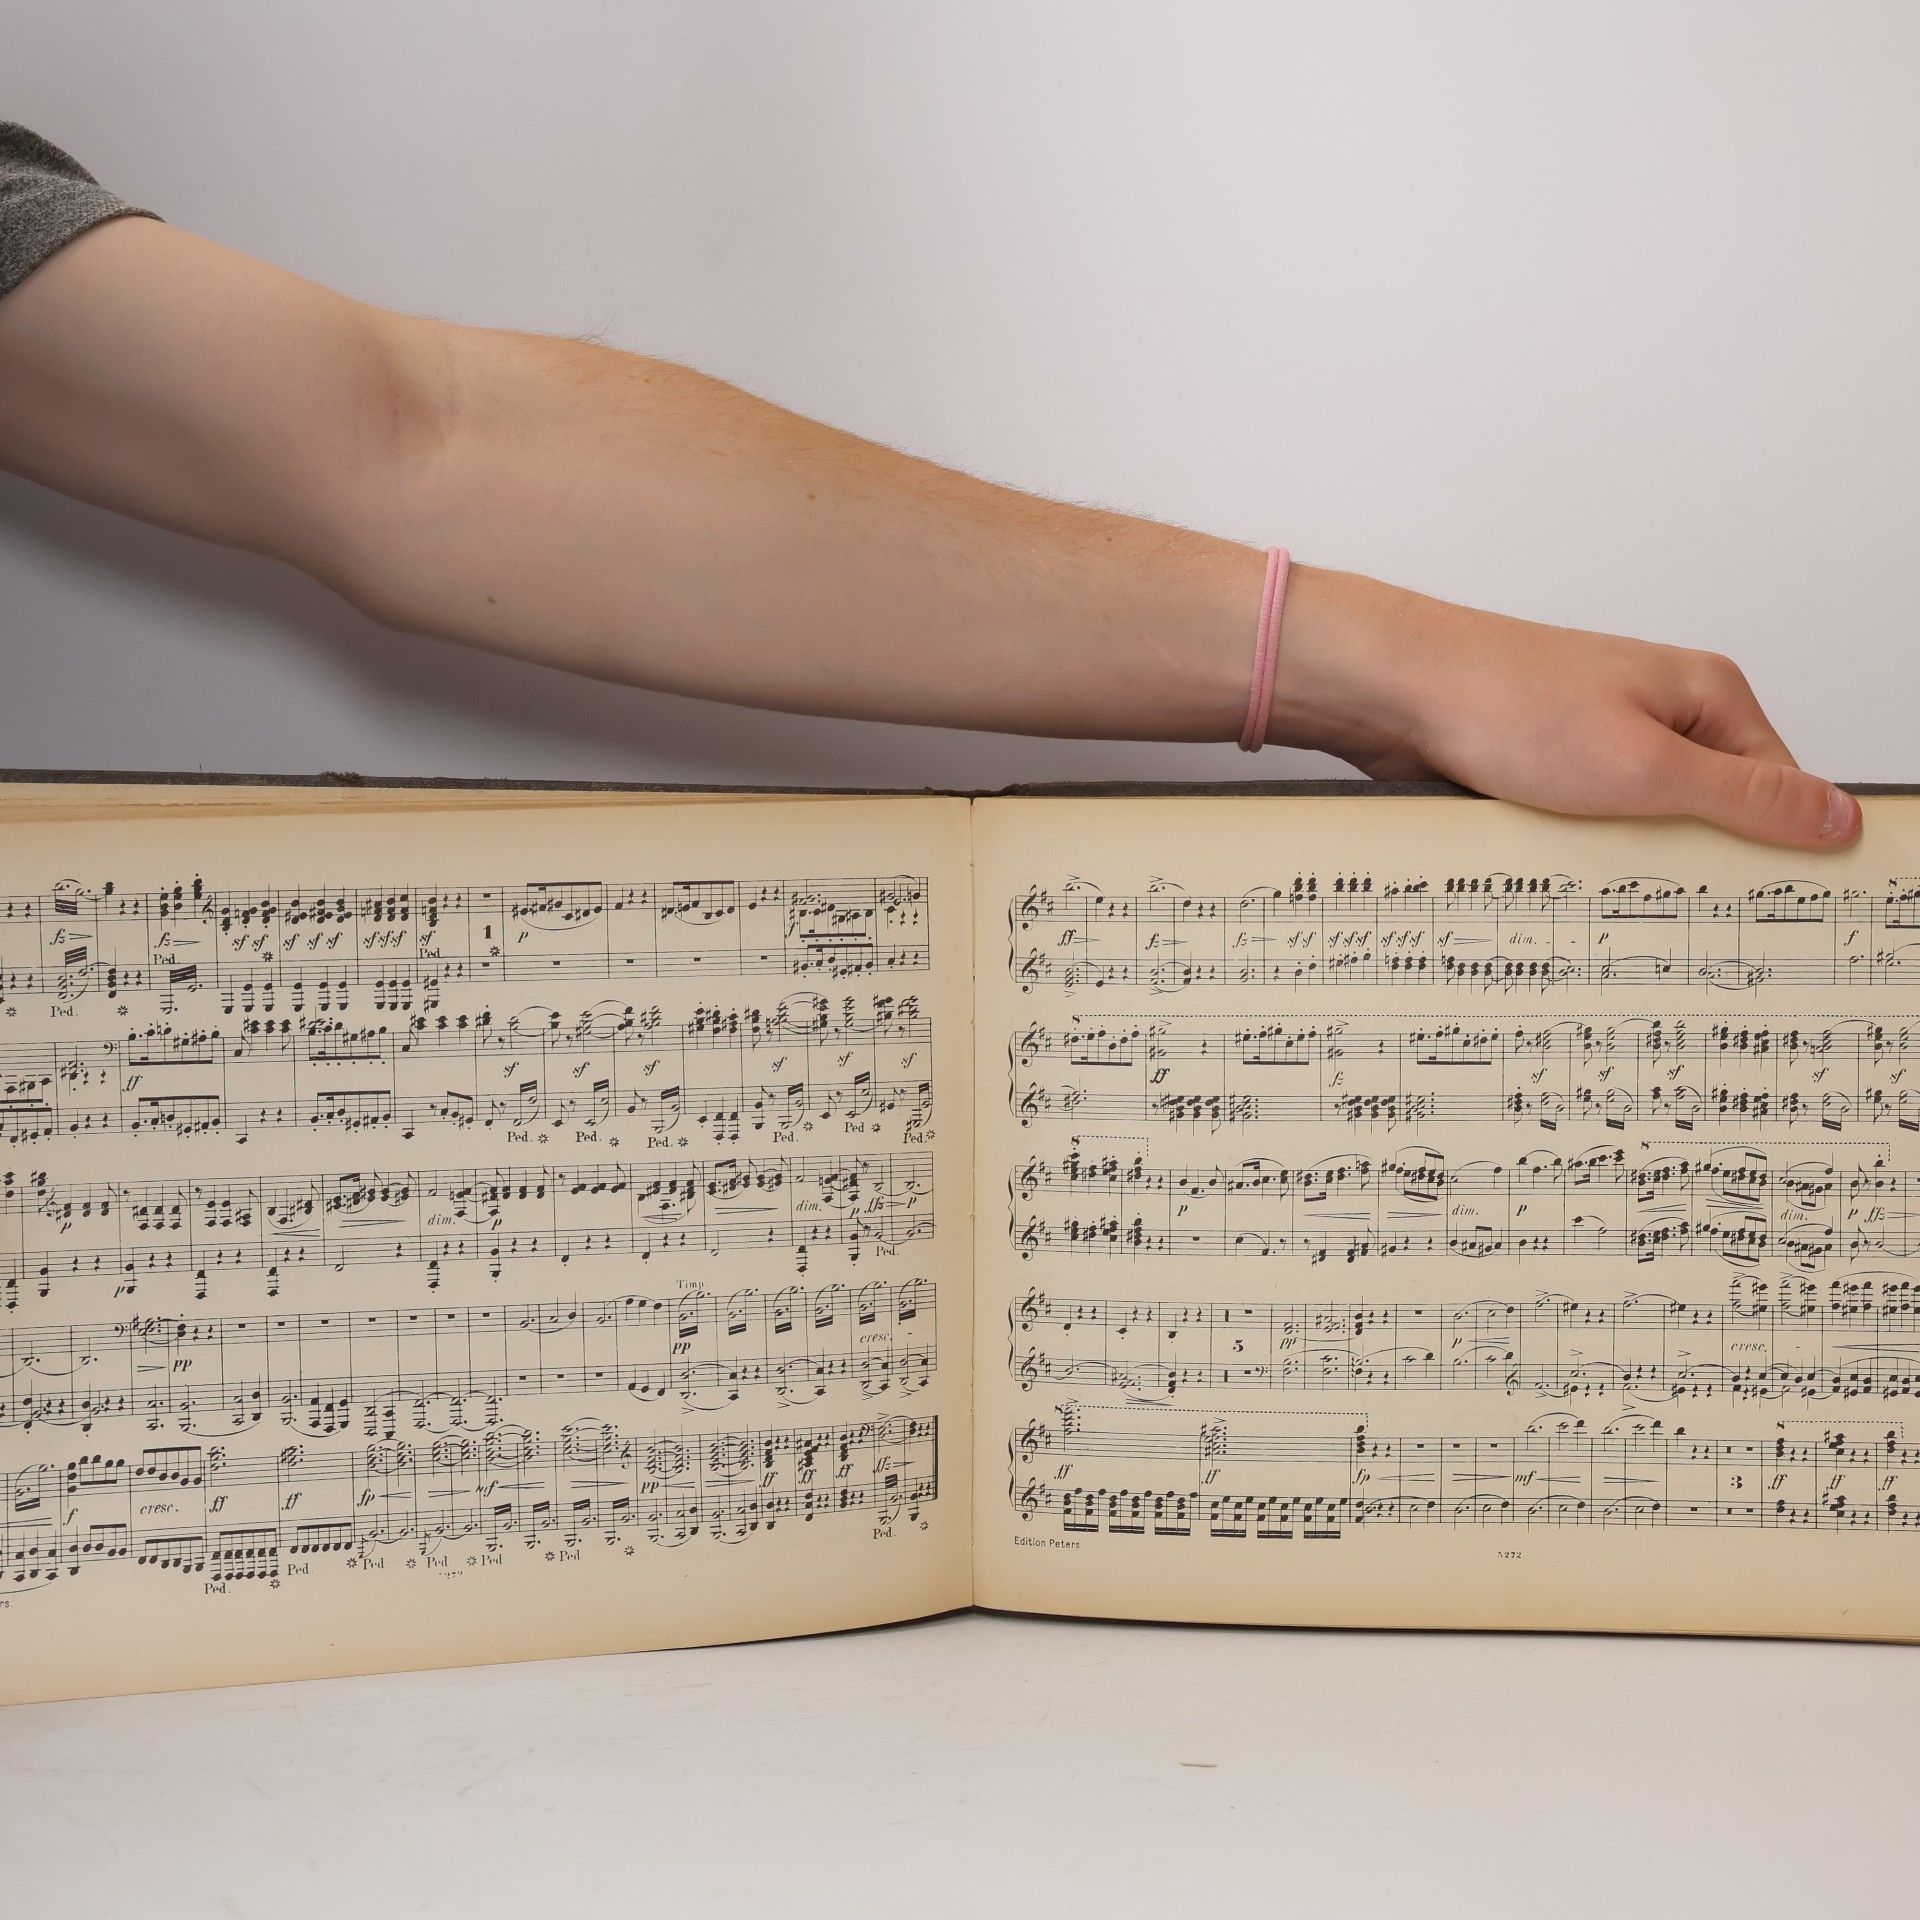 fz fz sf sf sf sf sf sf sf sf sf 1 p f
Ped. Ped.
Ped. Ped.
ff sf sf sf sf sf sf
Ped. Ped. Ped. Ped. Ped. Ped.
p dim. p dim. p ffz p
p Ped.
Timp.
pp pp cresc. -
f cresc. ff ff fp mf pp ff ff ff ffz
Ped. Ped. Ped. Ped. Ped. Ped Ped.
rs.
ff fz fz sf sf sf sf sf sf sf sf sf dim. - - p f
8
8
ff fz sf sf sf sf sf
8 8
p dim. p dim. p ffz
5 pp p cresc. -
8 8
ff ff fp mf 3 ff ff ff
Edition Peters.
5272